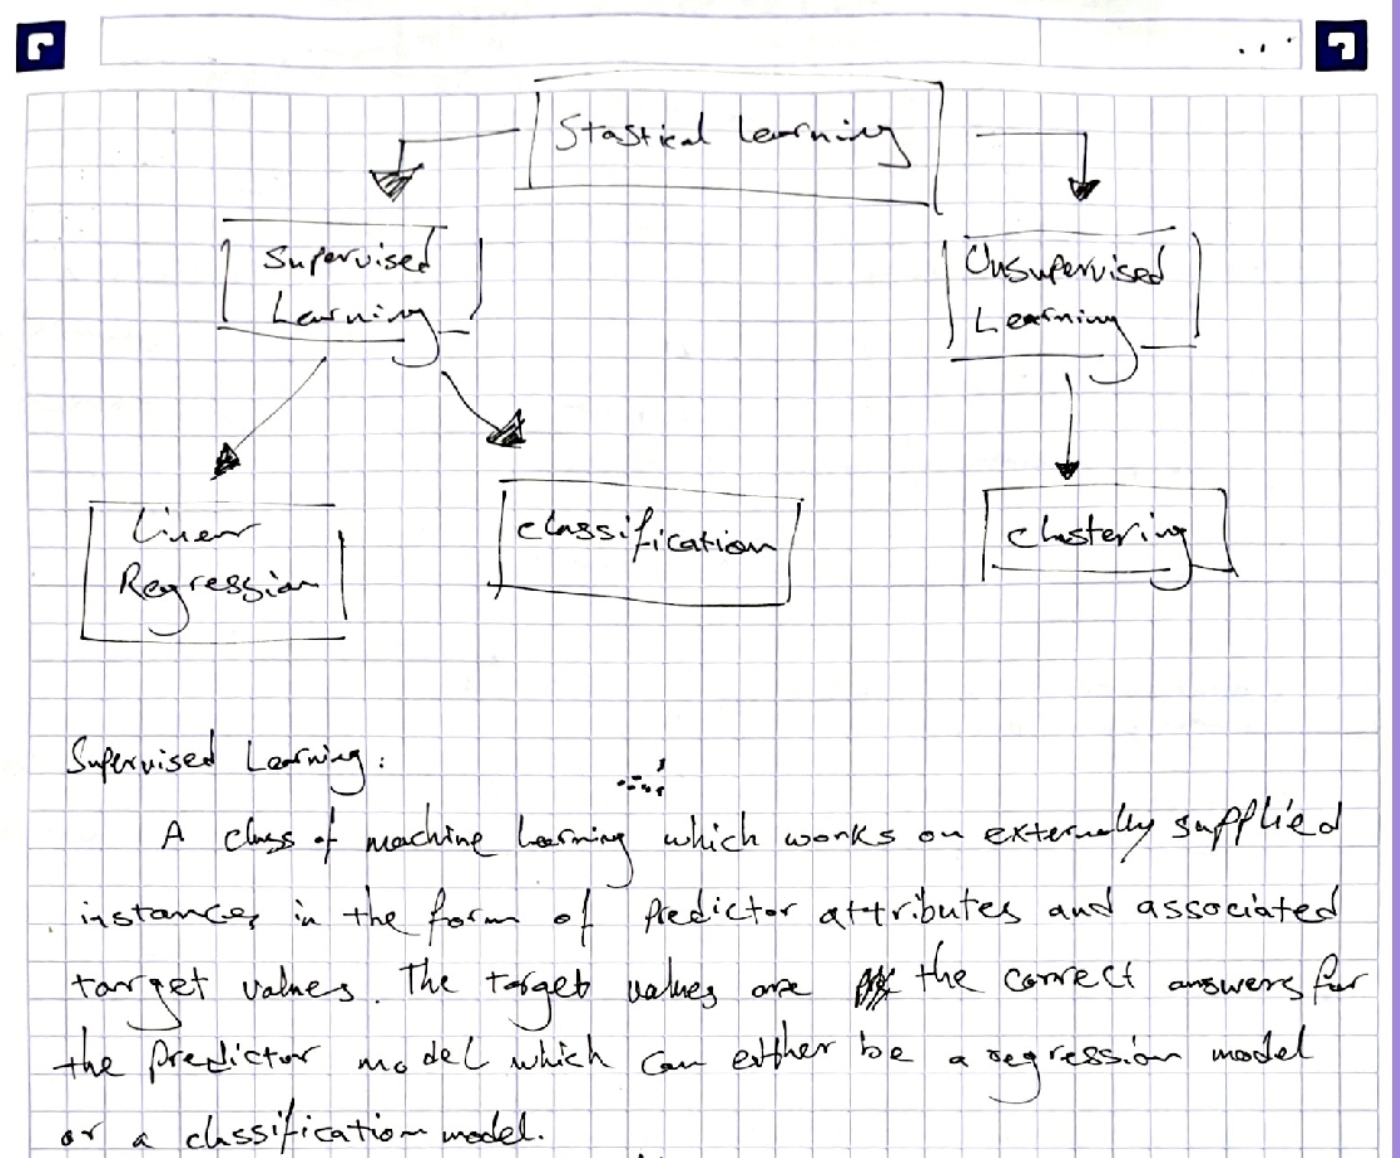 Stastical Learning
Supervised
Learning
Unsupervised
Learning
Linear
Regression
classification
clustering
Supervised Learning:
A class of machine learning which works on externally supplied
instances in the form of predictor attributes and associated
target values. The target values are the correct answers for
the predictor model which can either be a regression model
or a classification model.